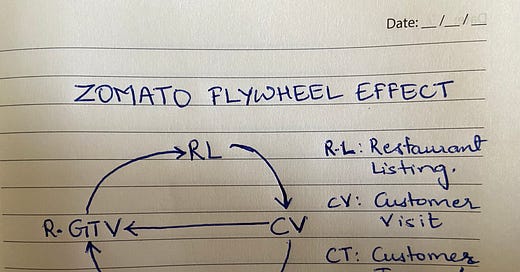 Date: __/__/__
ZOMATO FLYWHEEL EFFECT
RL
R-L: Restaurant
Listing.
CV: Customer
Visit
R-GTV
CV
CT: Customer